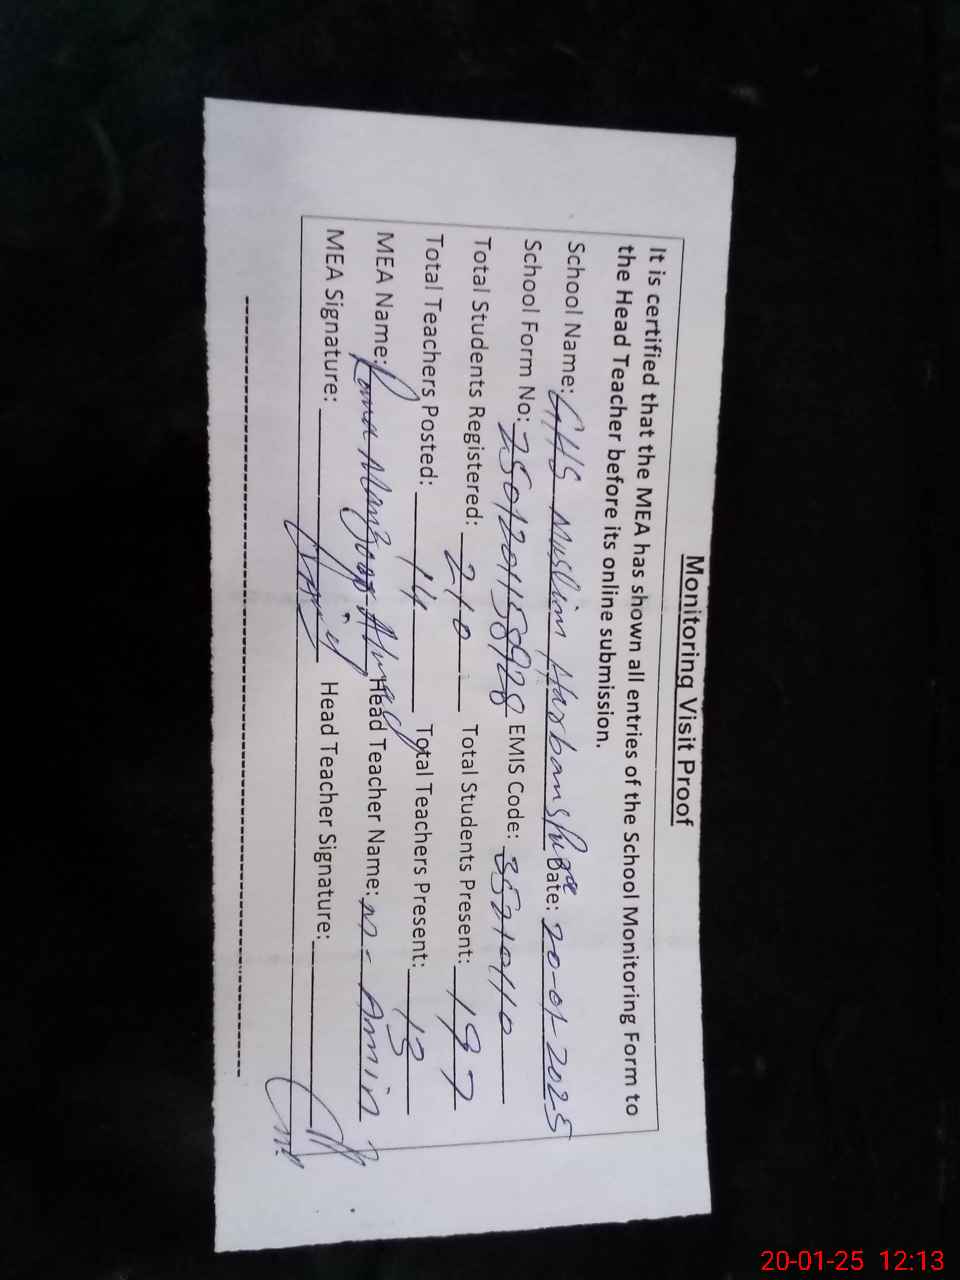 Monitoring Visit Proof
It is certified that the MEA has shown all entries of the School Monitoring Form to
the Head Teacher before its online submission.
School Name: GHS Muslim Date: 20-01-2025
School Form No: EMIS Code: 35210110
Total Students Registered: 210 Total Students Present: 197
Total Teachers Posted: 14 Total Teachers Present: 13
MEA Name: Rana Ahmad Head Teacher Name: M. Amin
MEA Signature: Head Teacher Signature:
20-01-25 12:13